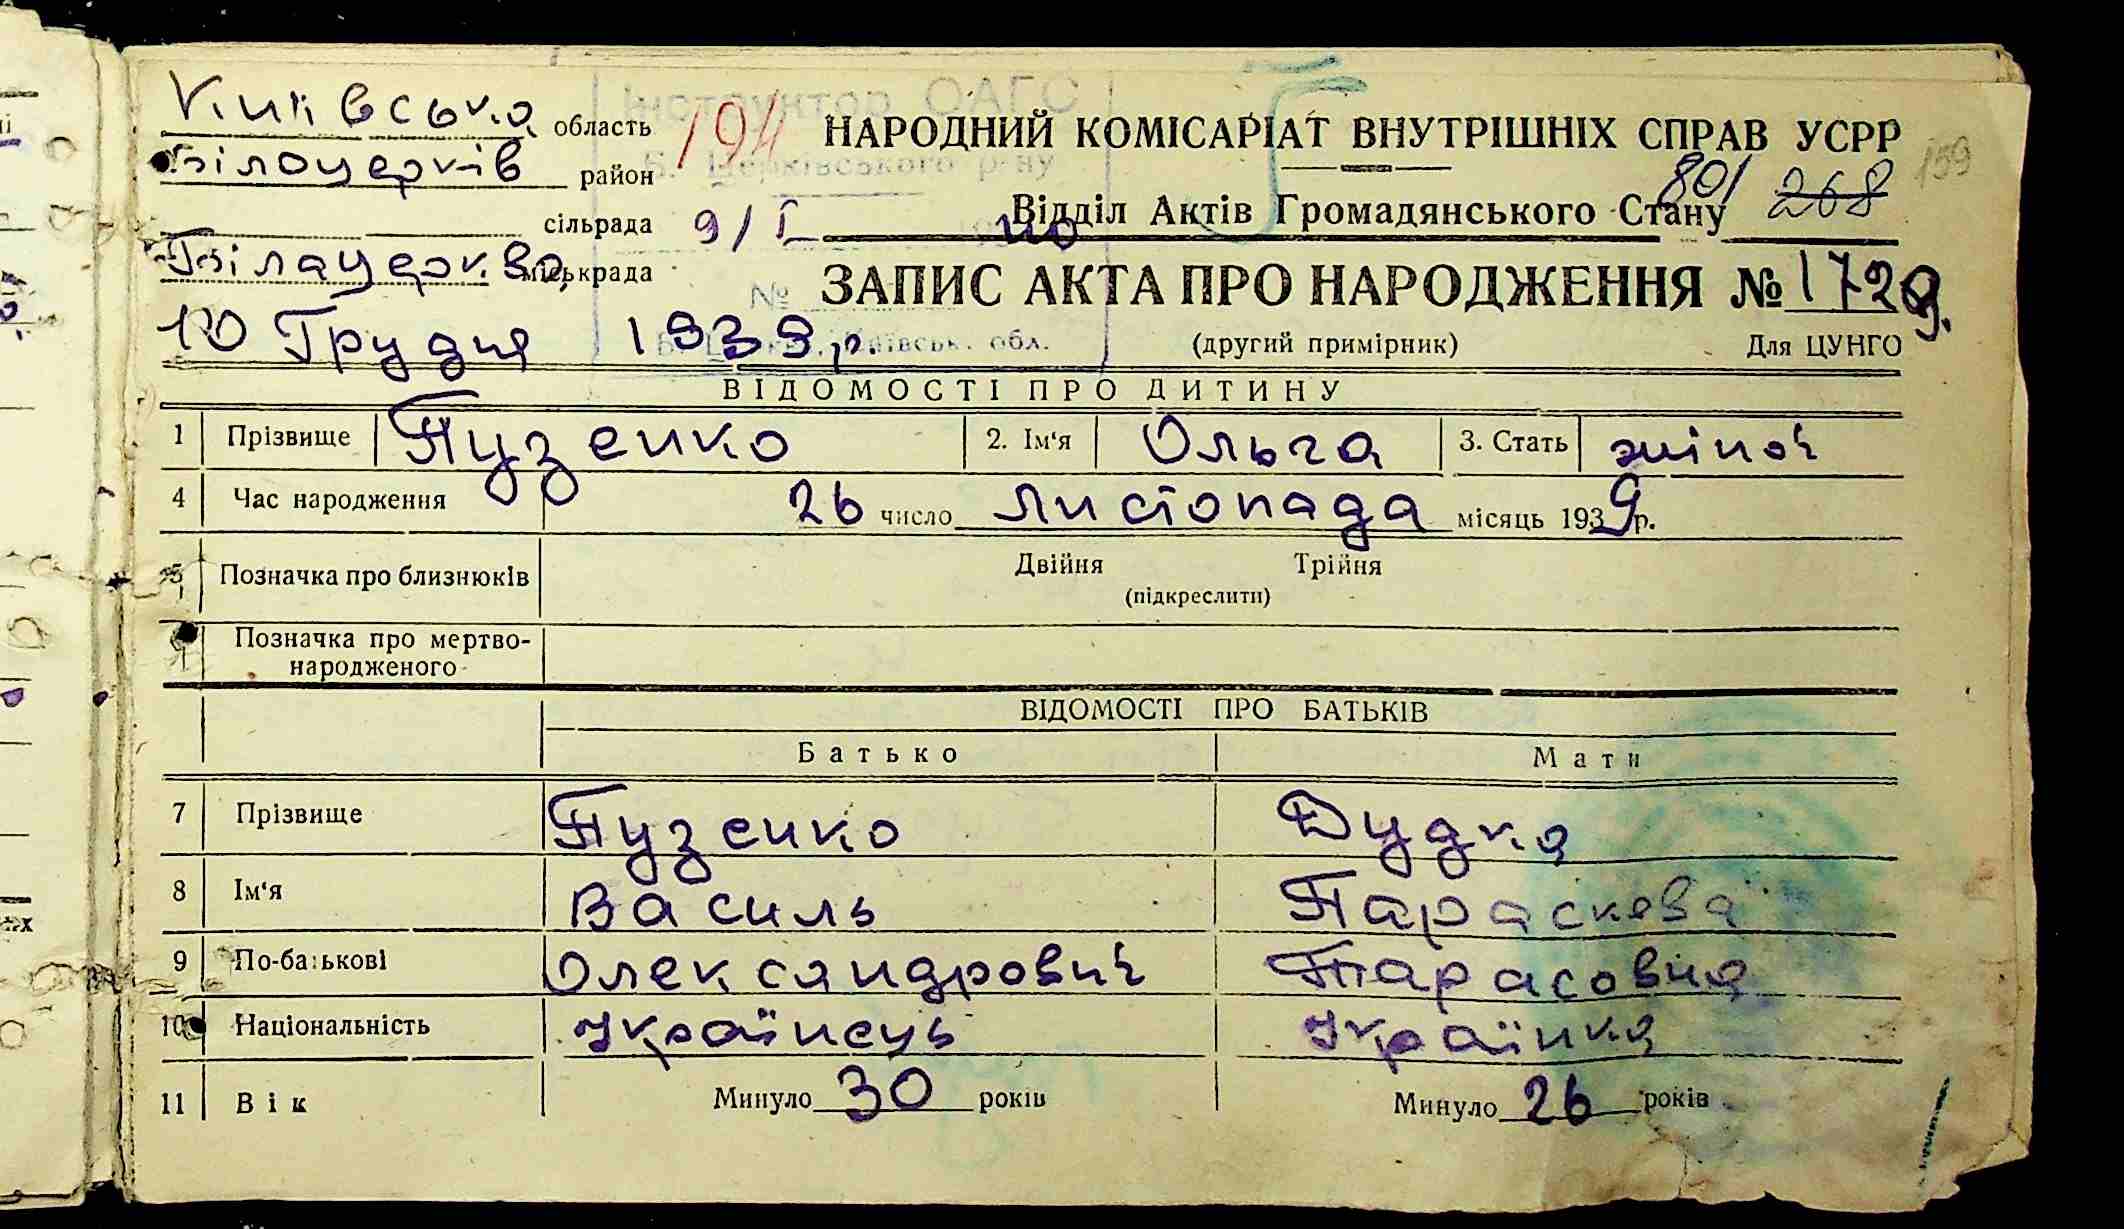 Київська область
Білоцерків район
сільрада
Білацерква міськрада
10 Грудня 1939 р.
Інструктор ОАГС
Б. Церківського р-ну
194
9/I
№
НАРОДНИЙ КОМІСАРІАТ ВНУТРІШНІХ СПРАВ УСРР
159
801 268
Відділ Актів Громадянського Стану
ЗАПИС АКТА ПРО НАРОДЖЕННЯ № 1729.
(другий примірник) Для ЦУНГО
ВІДОМОСТІ ПРО ДИТИНУ
1 Прізвище Пузенко 2. Ім'я Ольга 3. Стать жіноч
4 Час народження 26 число Листопада місяць 1939 р.
5 Позначка про близнюків Двійня Трійня
(підкреслити)
Позначка про мертво-
народженого
ВІДОМОСТІ ПРО БАТЬКІВ
Батько Мати
7 Прізвище Пузенко Дудка
8 Ім'я Василь Параскева
9 По-батькові Олександрович Тарасовна
10 Національність Українець Українка
11 Вік Минуло 30 років Минуло 26 років